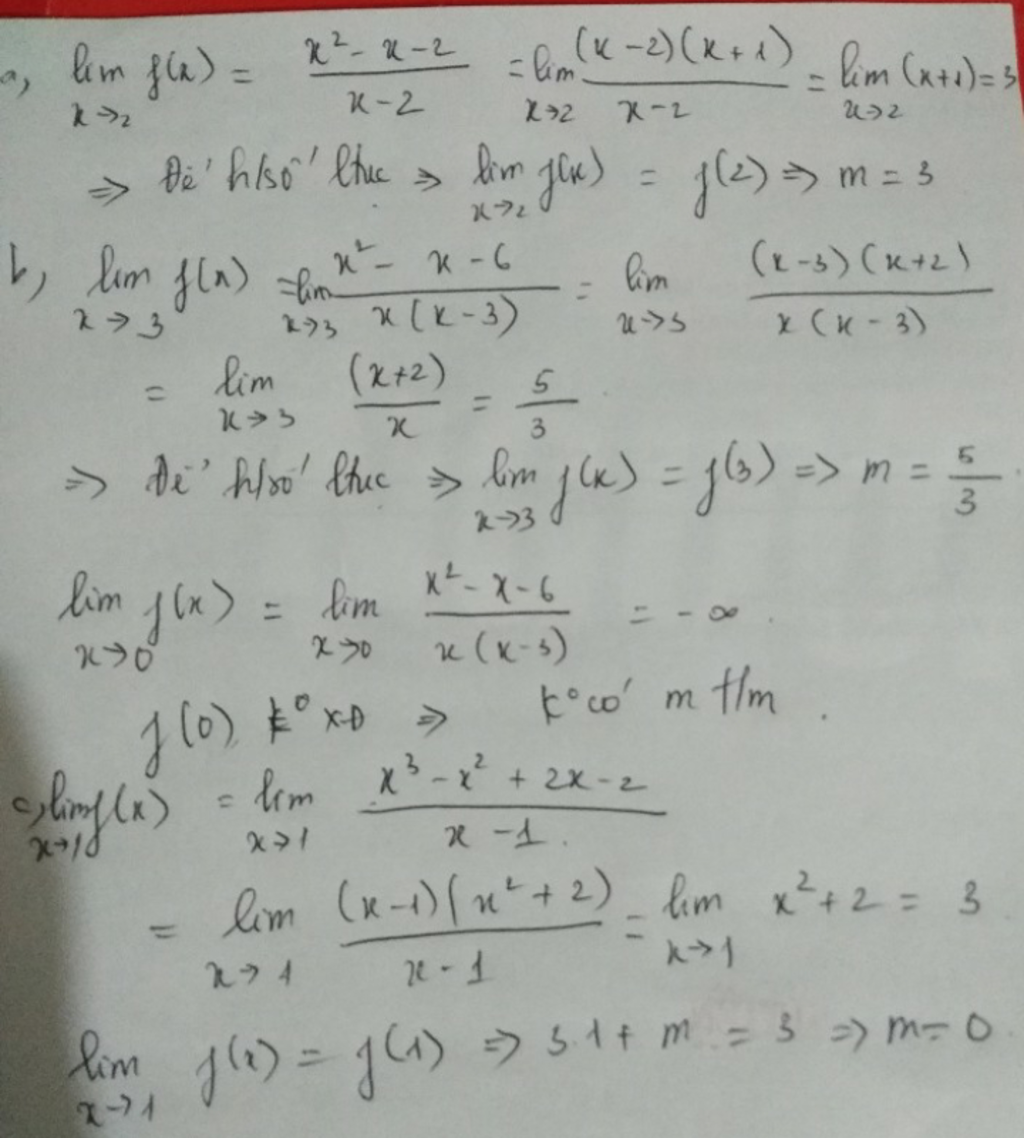 a, lim x→2 f(x) = (x² - x - 2)/(x - 2) = lim x→2 ((x - 2)(x + 1))/(x - 2) = lim x→2 (x+1) = 3
⇒ Để h/số ltục ⇒ lim x→2 f(x) = f(2) ⇒ m = 3
b, lim x→3 f(x) = lim x→3 (x² - x - 6)/(x(x - 3)) = lim x→3 ((x - 3)(x+2))/(x(x - 3))
= lim x→3 (x+2)/x = 5/3
⇒ Để h/số ltục ⇒ lim x→3 f(x) = f(3) ⇒ m = 5/3
lim x→0 f(x) = lim x→0 (x² - x - 6)/(x(x - 3)) = - ∞.
f(0) k° xđ ⇒ k° có m t/m.
c, lim x→1 f(x) = lim x→1 (x³ - x² + 2x - 2)/(x - 1).
= lim x→1 ((x - 1)(x² + 2))/(x - 1) = lim x→1 x² + 2 = 3
lim x→1 f(x) = f(1) ⇒ 3.1 + m = 3 ⇒ m = 0